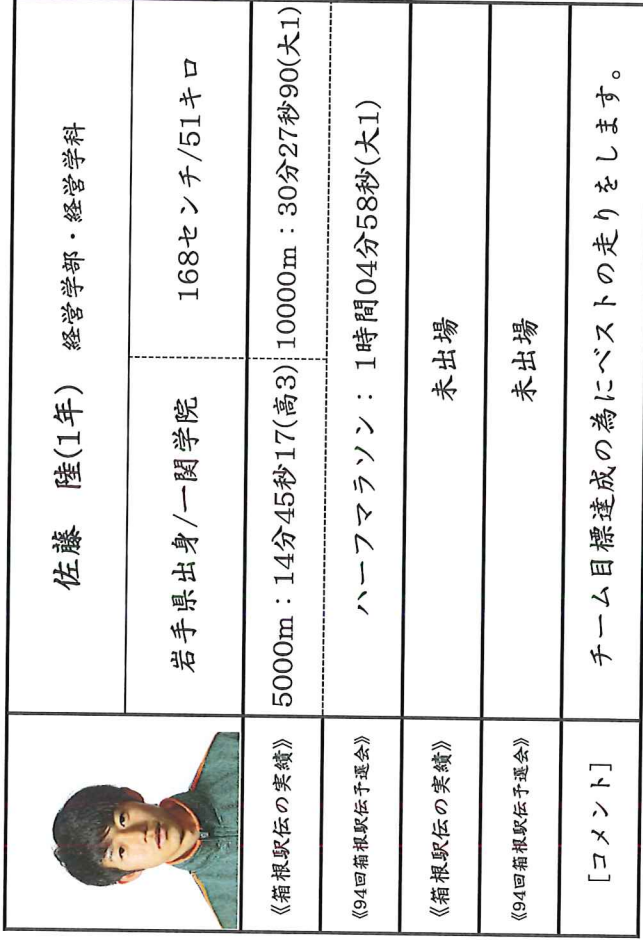 佐藤 陸(1年) 経営学部・経営学科
岩手県出身/一関学院 168センチ/51キロ
《箱根駅伝の実績》 5000m:14分45秒17(高3) 10000m:30分27秒90(大1)
《94回箱根駅伝予選会》 ハーフマラソン:1時間04分58秒(大1)
《箱根駅伝の実績》 未出場
《94回箱根駅伝予選会》 未出場
[コメント] チーム目標達成の為にベストの走りをします。